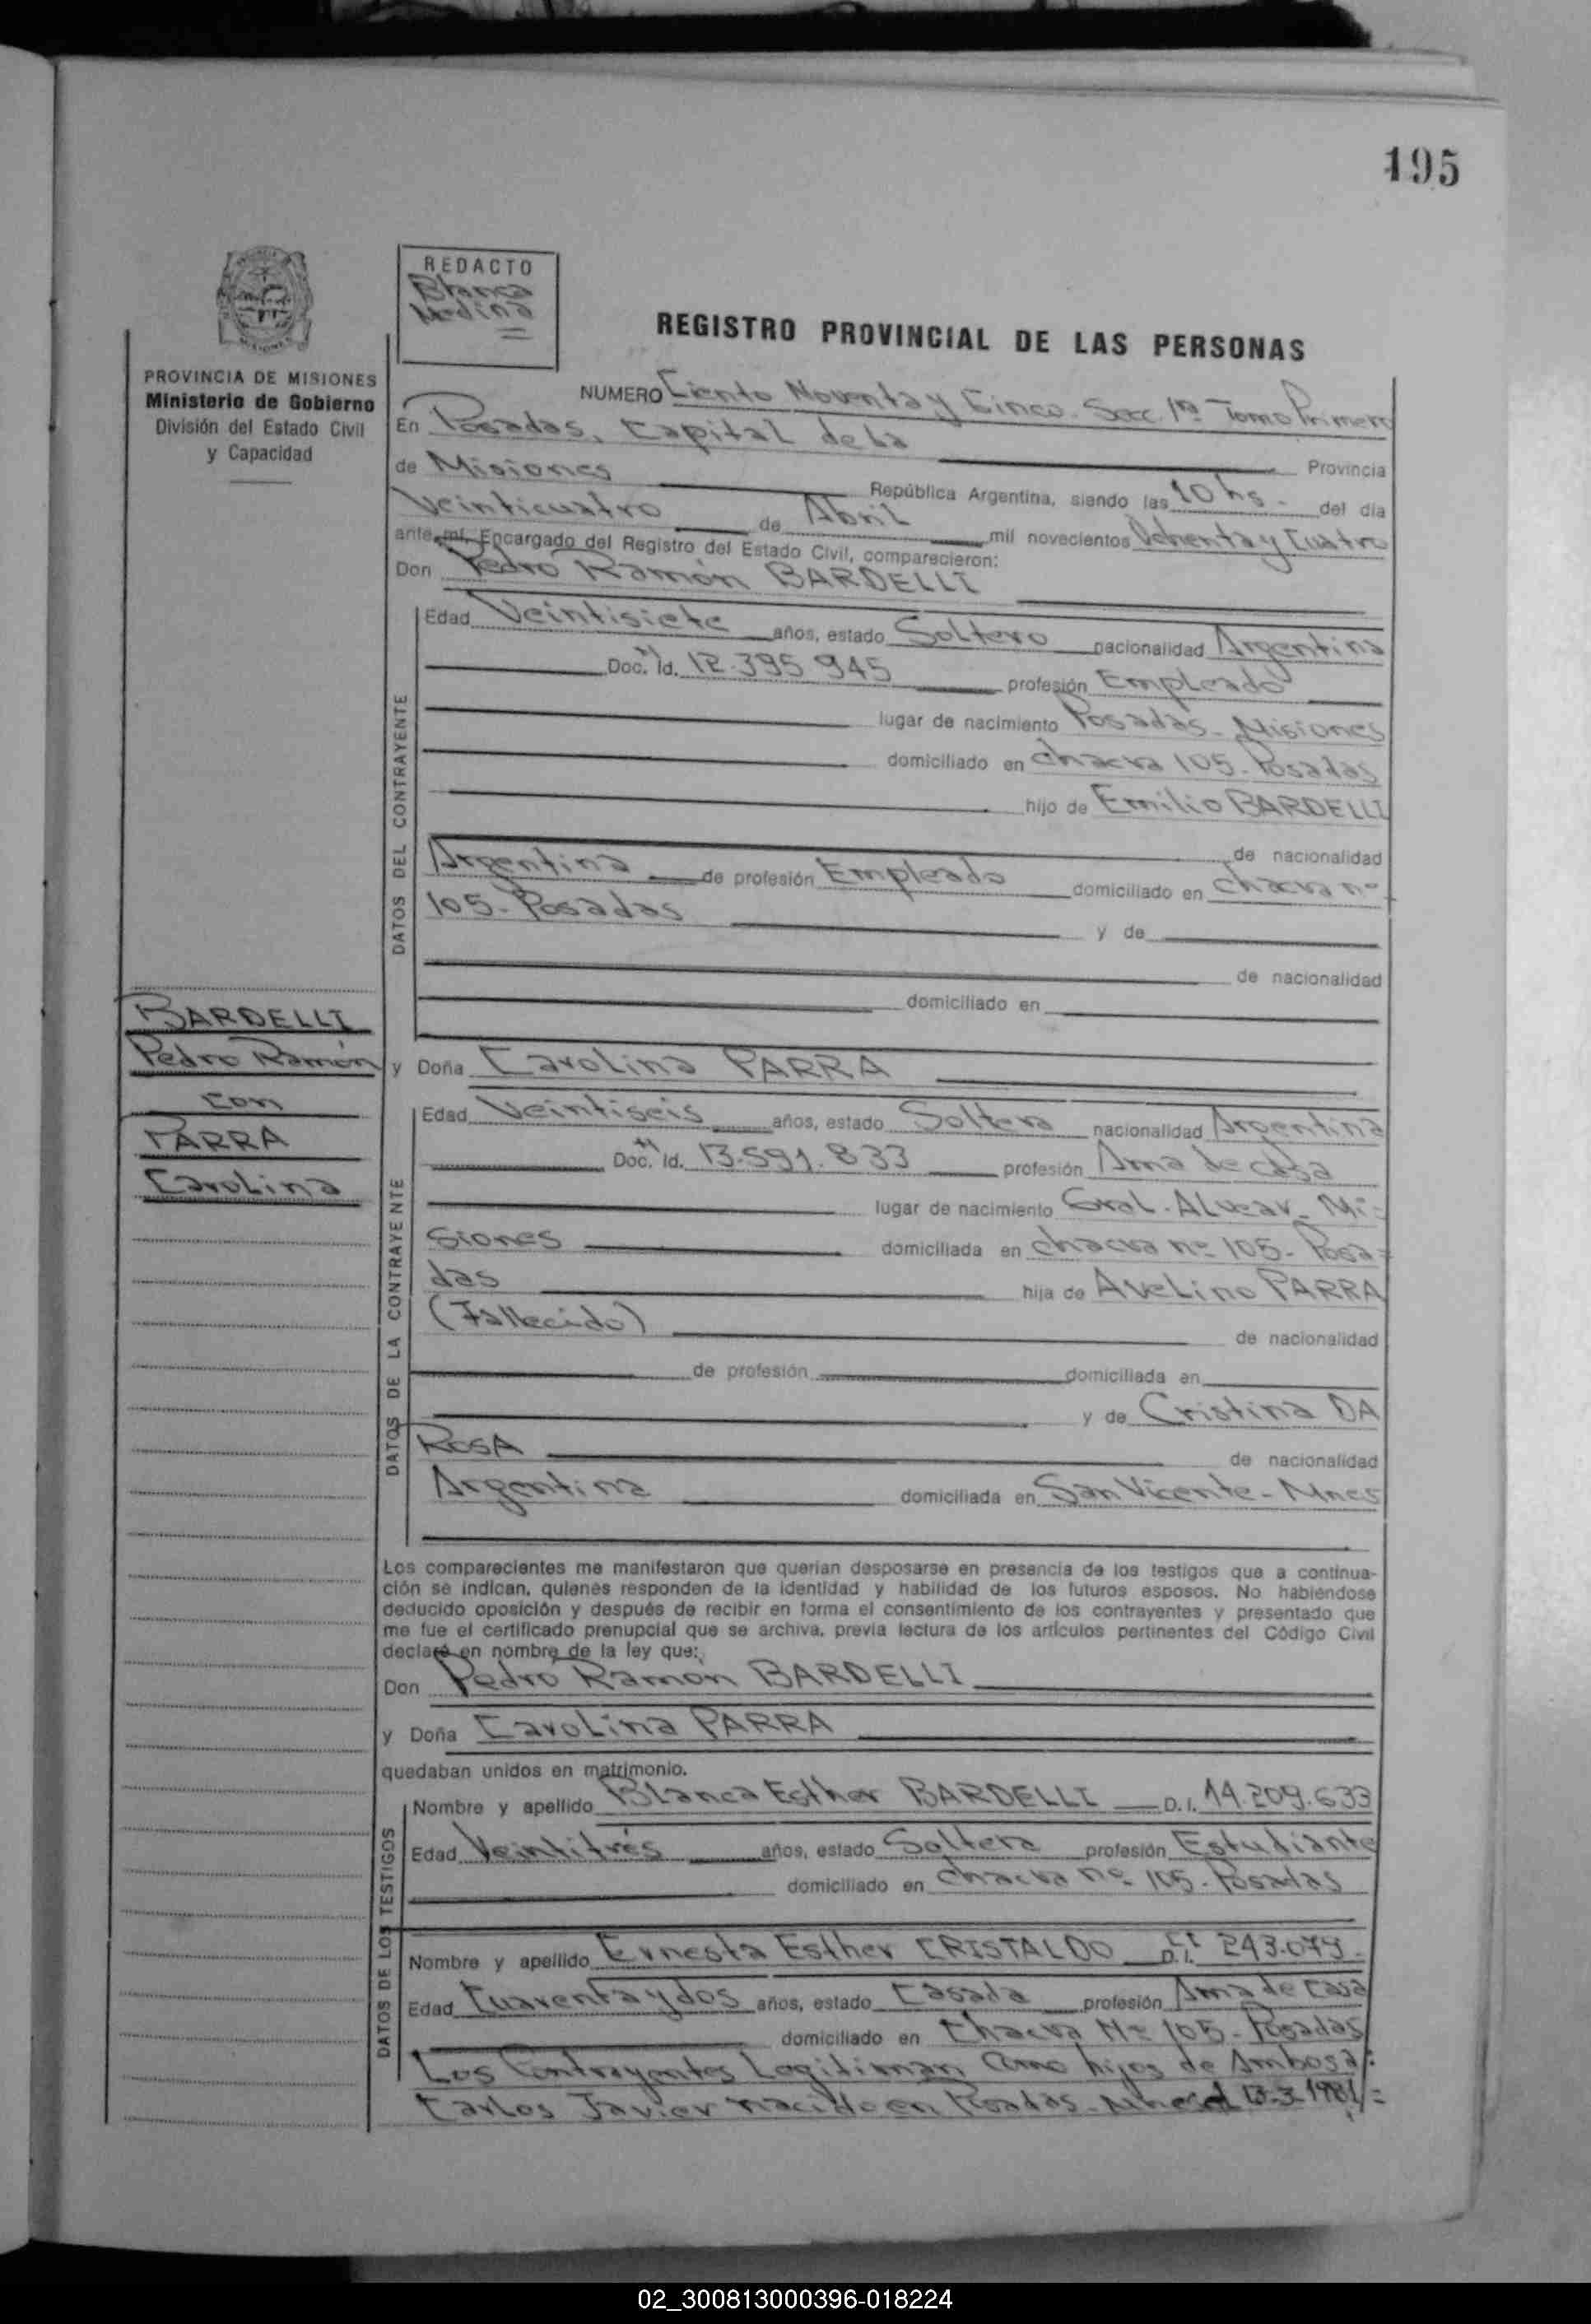 195
REDACTO
Blanca
Medina
PROVINCIA DE MISIONES
Ministerio de Gobierno
División del Estado Civil
y Capacidad
REGISTRO PROVINCIAL DE LAS PERSONAS
NUMERO Ciento Noventa y Cinco. Secc. 1ra Tomo Primero
En Posadas, Capital de la Provincia
de Misiones República Argentina, siendo las 10 hs. del día
Veinticuatro de Abril mil novecientos Ochenta y Cuatro
ante mí, Encargado del Registro del Estado Civil, comparecieron:
Don Pedro Ramón BARDELLI
DATOS DEL CONTRAYENTE
Edad Veintisiete años, estado Soltero nacionalidad Argentina
Doc. Id. 12.395.945 profesión Empleado
lugar de nacimiento Posadas - Misiones
domiciliado en chacra 105 - Posadas
hijo de Emilio BARDELLI
de nacionalidad
Argentina de profesión Empleado domiciliado en chacra nº
105 - Posadas y de
de nacionalidad
domiciliado en
BARDELLI
Pedro Ramón
con
PARRA
Carolina
y Doña Carolina PARRA
DATOS DE LA CONTRAYENTE
Edad Veintiseis años, estado Soltera nacionalidad Argentina
Doc. Id. 13.591.833 profesión Ama de casa
lugar de nacimiento Gral. Alvear - Mi=
siones domiciliada en chacra nº 105 - Posa=
das hija de Avelino PARRA
(Fallecido) de nacionalidad
de profesión domiciliada en
y de Cristina DA
ROSA de nacionalidad
Argentina domiciliada en San Vicente - Mnes
Los comparecientes me manifestaron que querían desposarse en presencia de los testigos que a continua-
ción se indican, quienes responden de la identidad y habilidad de los futuros esposos. No habiéndose
deducido oposición y después de recibir en forma el consentimiento de los contrayentes y presentado que
me fue el certificado prenupcial que se archiva, previa lectura de los artículos pertinentes del Código Civil
declaré en nombre de la ley que:
Don Pedro Ramon BARDELLI
y Doña Carolina PARRA
quedaban unidos en matrimonio.
DATOS DE LOS TESTIGOS
Nombre y apellido Blanca Esther BARDELLI D. I. 14.209.633
Edad Veintitrés años, estado Soltera profesión Estudiante
domiciliado en chacra nº 105 - Posadas
Nombre y apellido Ernesta Esther CRISTALDO D. I. 243.079
Edad Cuarenta y dos años, estado Casada profesión Ama de casa
domiciliado en Chacra Nº 105 - Posadas
Los Contrayentes Legitiman como hijos de Ambos a:
Carlos Javier nacido en Posadas - el 13-3-1981 =
02_300813000396-018224